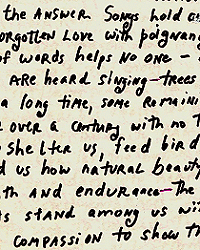 the ANSWER Songs hold
forgotten Love with poignanc
of words helps no one —
ARE heard singing—trees
a long time, some Remaini
over a century, with no
shelter us, feed bird
us how natural beauty
AND endurance—the
stand among us wi
compassion to show th